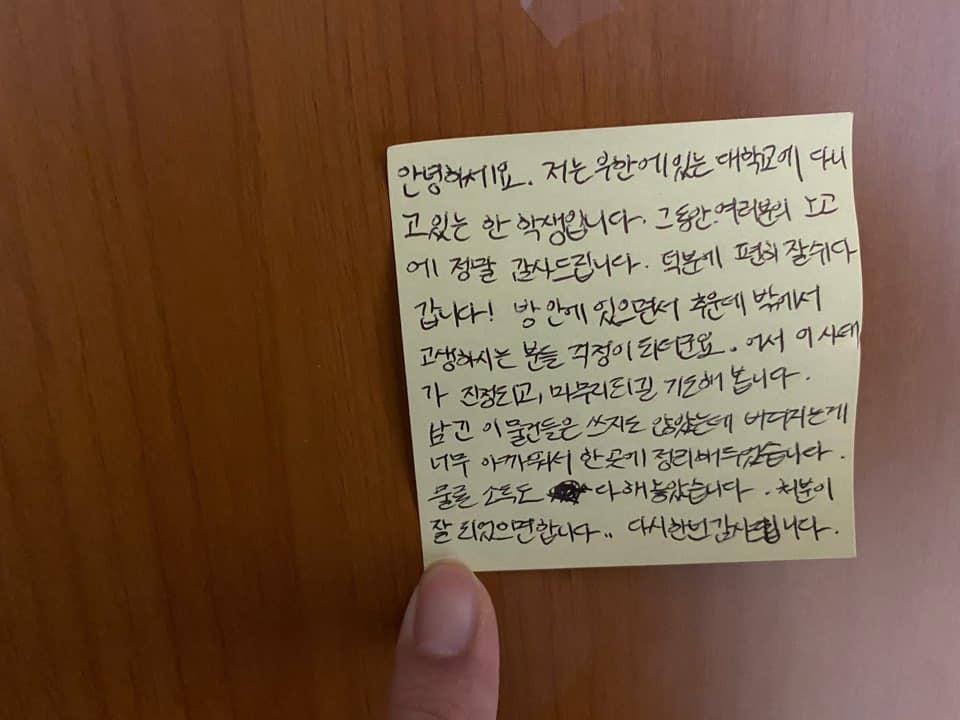 안녕하세요. 저는 우한에 있는 대학교에 다니
고 있는 한 학생입니다. 그동안 여러분의 노고
에 정말 감사드립니다. 덕분에 편히 잘쉬다
갑니다! 방 안에 있으면서 추운데 밖에서
고생하시는 분들 걱정이 되더군요. 어서 이 사태
가 진정되고, 마무리되길 기도해 봅니다.
남긴 이 물건들은 쓰지도 않았는데 버려지는게
너무 아까워서 한곳에 정리해 두었습니다.
물론 소독도 다 해 놓았습니다. 처분이
잘 되었으면 합니다.. 다시한번 감사드립니다.